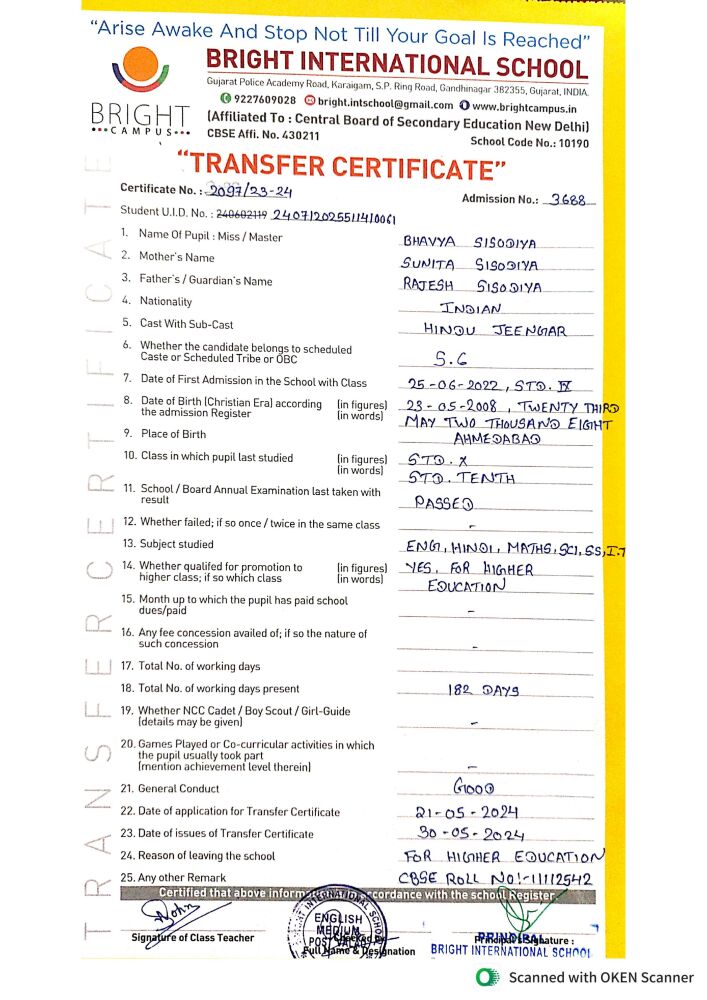 “Arise Awake And Stop Not Till Your Goal Is Reached”
BRIGHT INTERNATIONAL SCHOOL
Gujarat Police Academy Road, Karaigam, S.P. Ring Road, Gandhinagar 382355, Gujarat, INDIA.
9227609028 bright.intschool@gmail.com www.brightcampus.in
BRIGHT
CAMPUS
(Affiliated To : Central Board of Secondary Education New Delhi)
CBSE Affi. No. 430211 School Code No.: 10190
“TRANSFER CERTIFICATE”
Certificate No. : 2097/23-24 Admission No.: 3688
Student U.I.D. No. : 240602119 240712025511410061
1. Name Of Pupil : Miss / Master BHAVYA SISODIYA
2. Mother's Name SUNITA SISODIYA
3. Father's / Guardian's Name RAJESH SISODIYA
4. Nationality INDIAN
5. Cast With Sub-Cast HINDU JEENGAR
6. Whether the candidate belongs to scheduled
Caste or Scheduled Tribe or OBC S.C
7. Date of First Admission in the School with Class 25-06-2022, STD. IX
8. Date of Birth (Christian Era) according (in figures) 23-05-2008, TWENTY THIRD
the admission Register (in words) MAY TWO THOUSAND EIGHT
9. Place of Birth AHMEDABAD
10. Class in which pupil last studied (in figures) STD. X
(in words) STD. TENTH
11. School / Board Annual Examination last taken with
result PASSED
12. Whether failed; if so once / twice in the same class -
13. Subject studied ENG, HINDI, MATHS, SCI, SS, I.T
14. Whether qualifed for promotion to (in figures) YES, FOR HIGHER
higher class; if so which class (in words) EDUCATION
15. Month up to which the pupil has paid school
dues/paid -
16. Any fee concession availed of; if so the nature of
such concession -
17. Total No. of working days
18. Total No. of working days present 182 DAYS
19. Whether NCC Cadet / Boy Scout / Girl-Guide
(details may be given) -
20. Games Played or Co-curricular activities in which
the pupil usually took part
(mention achievement level therein) -
21. General Conduct GOOD
22. Date of application for Transfer Certificate 21-05-2024
23. Date of issues of Transfer Certificate 30-05-2024
24. Reason of leaving the school FOR HIGHER EDUCATION
25. Any other Remark CBSE ROLL NO:-11112542
Certified that above accordance with the school Register
Signature of Class Teacher
Full Name & Designation
ENGLISH
MEDIUM
INTERNATIONAL
PRINCIPAL
Signature :
BRIGHT INTERNATIONAL SCHOOL
TRANSFER CERTIFICATE
Scanned with OKEN Scanner